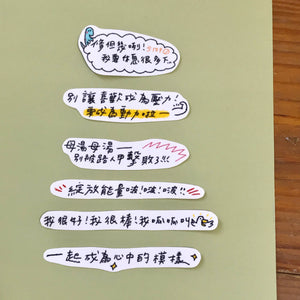 我要休息很多下
別讓喜歡成為壓力!
要成為動力啦一
母湯母湯一
別被路人甲擊敗了!!!
綻放能量啵!啵!啵!!
我很好!我很棒!我呱呱叫
一起成為心中的模樣